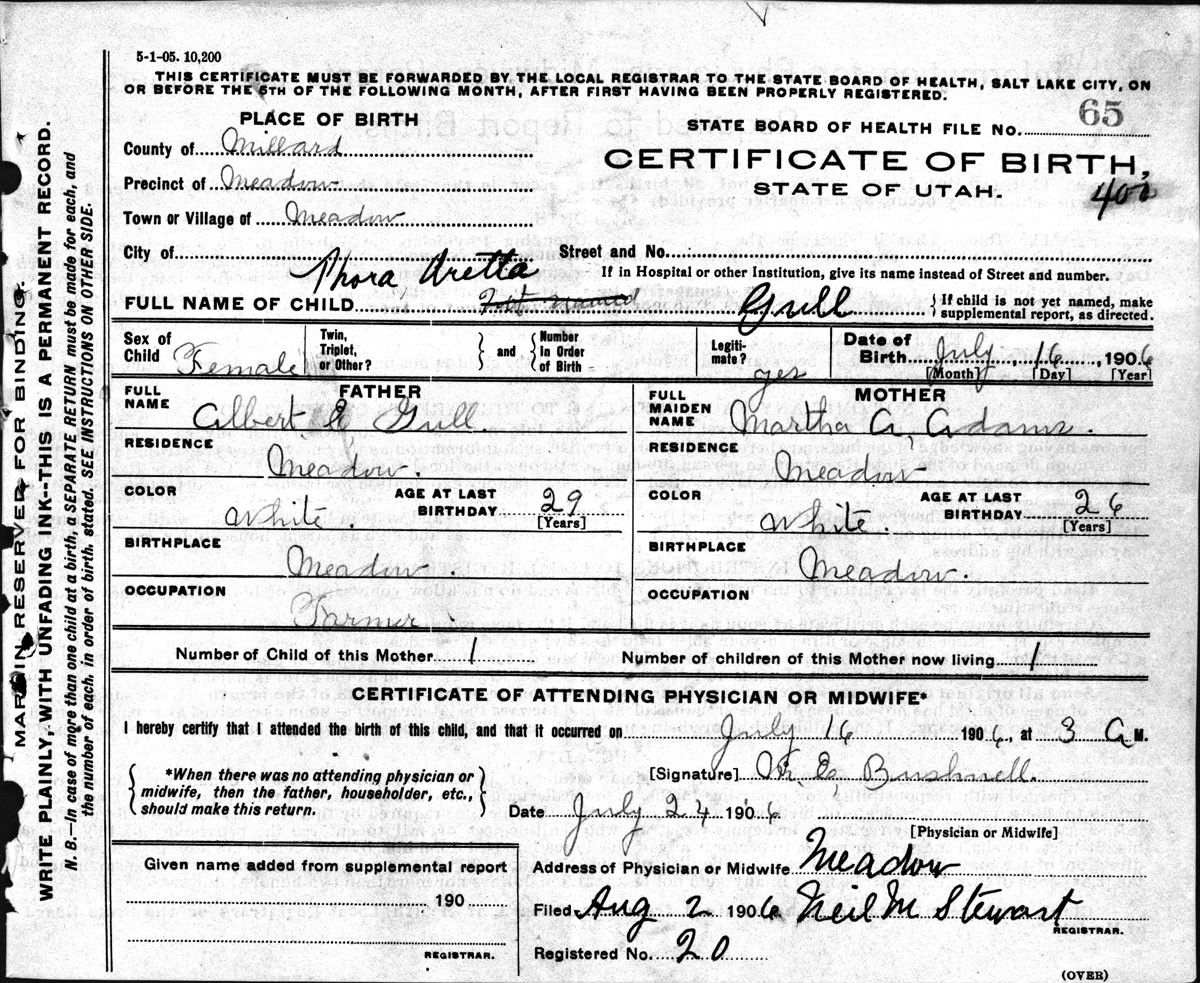 5-1-05. 10,200
THIS CERTIFICATE MUST BE FORWARDED BY THE LOCAL REGISTRAR TO THE STATE BOARD OF HEALTH, SALT LAKE CITY, ON
OR BEFORE THE 5TH OF THE FOLLOWING MONTH, AFTER FIRST HAVING BEEN PROPERLY REGISTERED.
MARGIN RESERVED FOR BINDING.
WRITE PLAINLY, WITH UNFADING INK--THIS IS A PERMANENT RECORD.
N. B.—In case of more than one child at a birth, a SEPARATE RETURN must be made for each, and
the number of each, in order of birth, stated. SEE INSTRUCTIONS ON OTHER SIDE.
PLACE OF BIRTH
County of Millard
Precinct of Meadow
Town or Village of Meadow
City of
STATE BOARD OF HEALTH FILE NO. 65
CERTIFICATE OF BIRTH,
STATE OF UTAH. 400
Street and No.
If in Hospital or other Institution, give its name instead of Street and number.
Phora Aretta
FULL NAME OF CHILD Not named Gull
{If child is not yet named, make
supplemental report, as directed.
Sex of Child Female
Twin, Triplet, or Other? } and { Number In Order of Birth
Legiti-mate? yes
Date of Birth July 16, 1906
[Month] [Day] [Year]
FATHER
FULL NAME Albert E Gull.
RESIDENCE Meadow.
COLOR White.
AGE AT LAST BIRTHDAY 29
[Years]
BIRTHPLACE Meadow.
OCCUPATION Farmer.
MOTHER
FULL MAIDEN NAME Martha A. Adams.
RESIDENCE Meadow
COLOR White.
AGE AT LAST BIRTHDAY 26
[Years]
BIRTHPLACE Meadow.
OCCUPATION
Number of Child of this Mother 1 Number of children of this Mother now living 1
CERTIFICATE OF ATTENDING PHYSICIAN OR MIDWIFE*
I hereby certify that I attended the birth of this child, and that it occurred on July 16 1906, at 3 A M.
{*When there was no attending physician or
midwife, then the father, householder, etc.,
should make this return.}
[Signature] Bushnell.
Date July 24 1906
[Physician or Midwife]
Given name added from supplemental report
190
REGISTRAR.
Address of Physician or Midwife Meadow
Filed Aug 2 1906 Neil M Stewart
REGISTRAR.
Registered No. 20
(OVER)